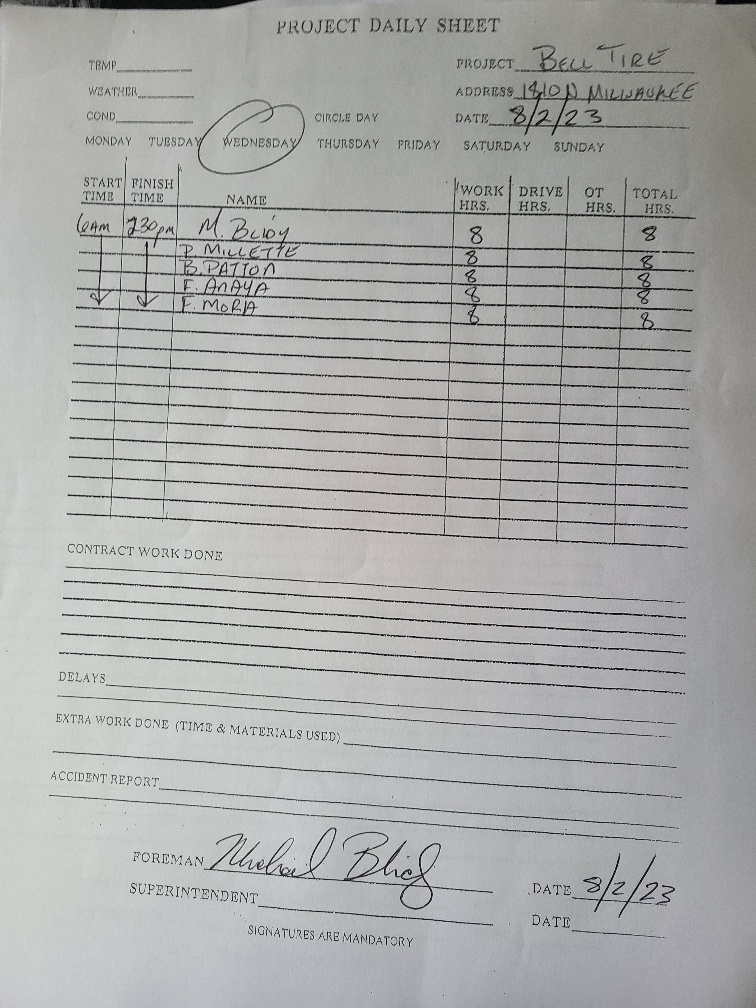 PROJECT DAILY SHEET
TEMP
PROJECT BELL TIRE
WEATHER
ADDRESS 1810 N MILWAUKEE
COND
CIRCLE DAY
DATE 8/2/23
MONDAY TUESDAY WEDNESDAY THURSDAY FRIDAY SATURDAY SUNDAY
START TIME FINISH TIME NAME WORK HRS. DRIVE HRS. OT HRS. TOTAL HRS.
6AM 230pm M. 8 8
P. MILLETTE 8 8
B. PATTON 8 8
F. ANAYA 8 8
F. MORA 8 8
CONTRACT WORK DONE
DELAYS
EXTRA WORK DONE (TIME & MATERIALS USED)
ACCIDENT REPORT
FOREMAN Michael DATE 8/2/23
SUPERINTENDENT DATE
SIGNATURES ARE MANDATORY